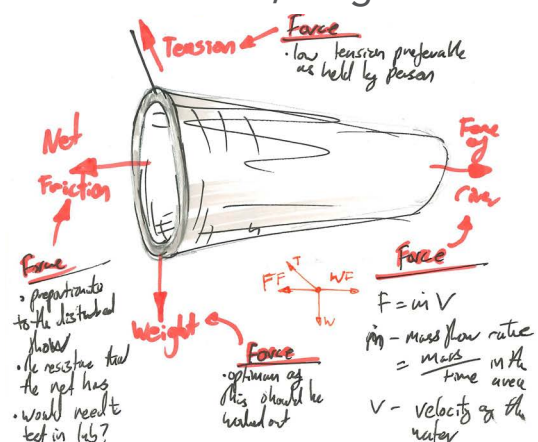 Force
Tension
• low tension preferable
as held by person
Net
Friction
Force of
river
Force
• proportionate
to the disturbed
flow
• the resistive
the net has
• would need to
test in lab?
Weight
Force
• optimum of
this should be
worked out
T
FF
WF
W
Force
F = ṁ V
ṁ - mass flow rate
= mass / time in the
area
V - velocity of the
water